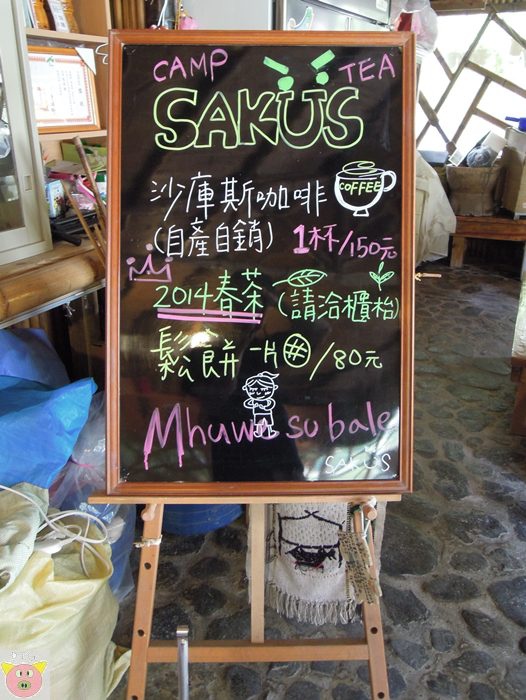 CAMP TEA
SAKUS
沙庫斯咖啡 COFFEE
(自產自銷) 1杯/150元
2014春茶 (請洽櫃枱)
鬆餅 一片/80元
Mhuwe su bale
SAKUS